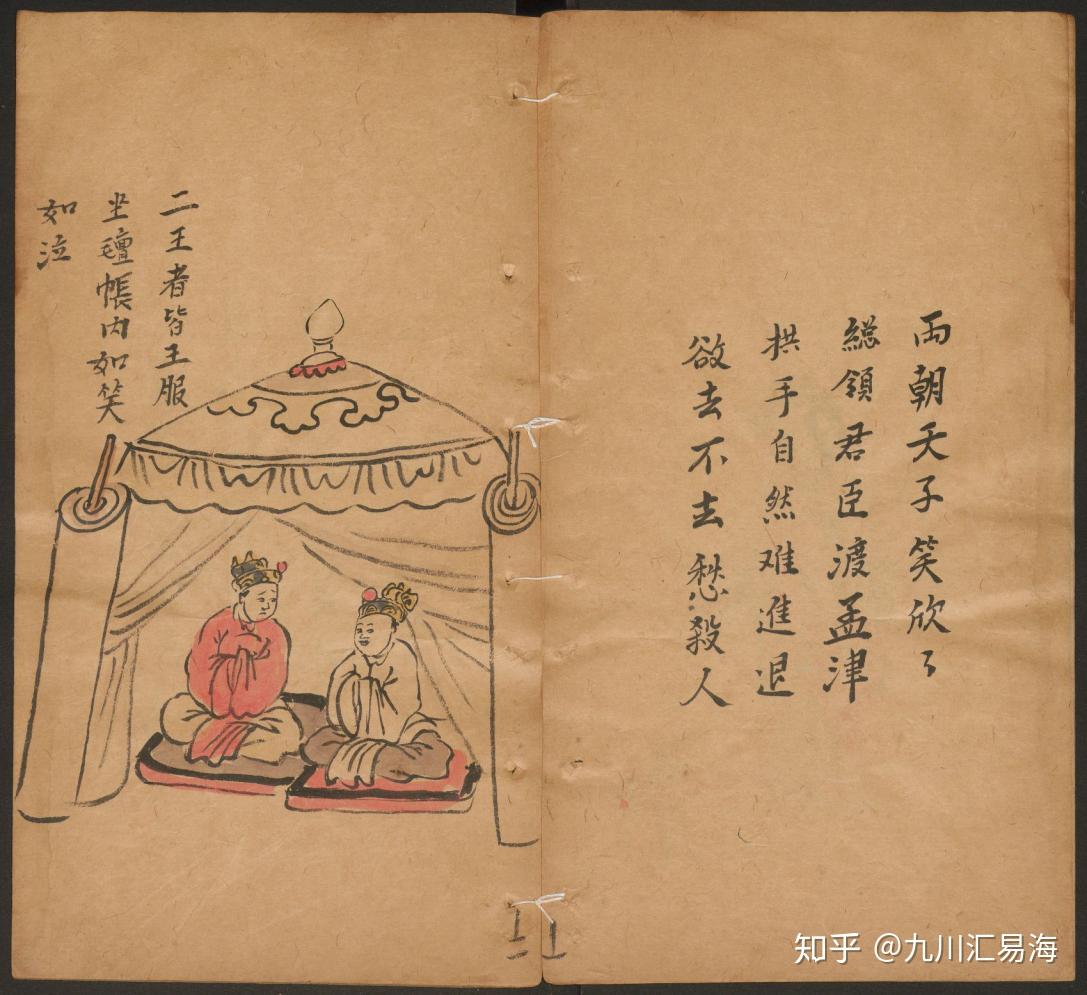 両朝天子笑欣々
緫領君臣渡孟津
拱手自然难進退
欲去不去愁殺人
二王者皆王服
坐氈帳内如笑
如泣
知乎 @九川汇易海